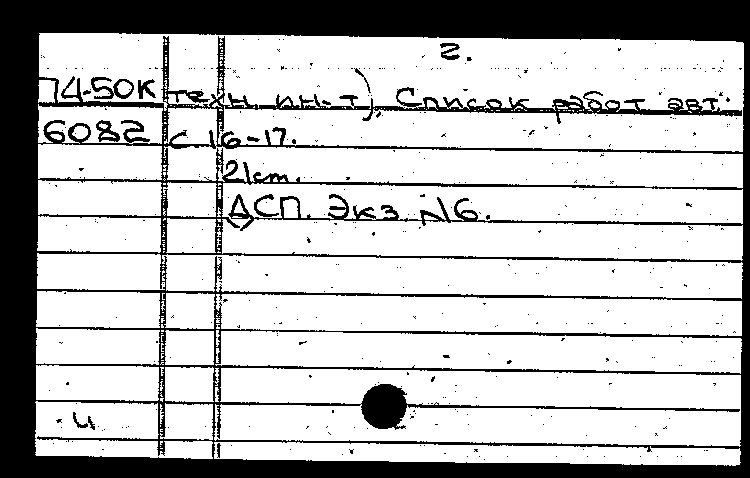 2.
74-50К техн. ин-т). Список работ авт.:
6082 с. 16-17.
21 см.
ДСП. Экз. №6.
и